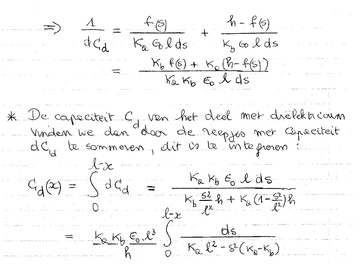 ⇒ 1/dC_d = f(s)/(K_a ε_0 l ds) + (h - f(s))/(K_b ε_0 l ds)
= (K_b f(s) + K_a (h - f(s)))/(K_a K_b ε_0 l ds)
* De capaciteit C_d van het deel met diëlektricum
vinden we dan door de reepjes met capaciteit
dC_d te sommeren, dit is te integreren :
C_d(x) = ∫_0^{l-x} dC_d = (K_a K_b ε_0 l ds)/(K_b s²/l² h + K_a (1 - s²/l²) h)
= (K_a K_b ε_0 l³)/h ∫_0^{l-x} ds/(K_a l² - s² (K_a - K_b))